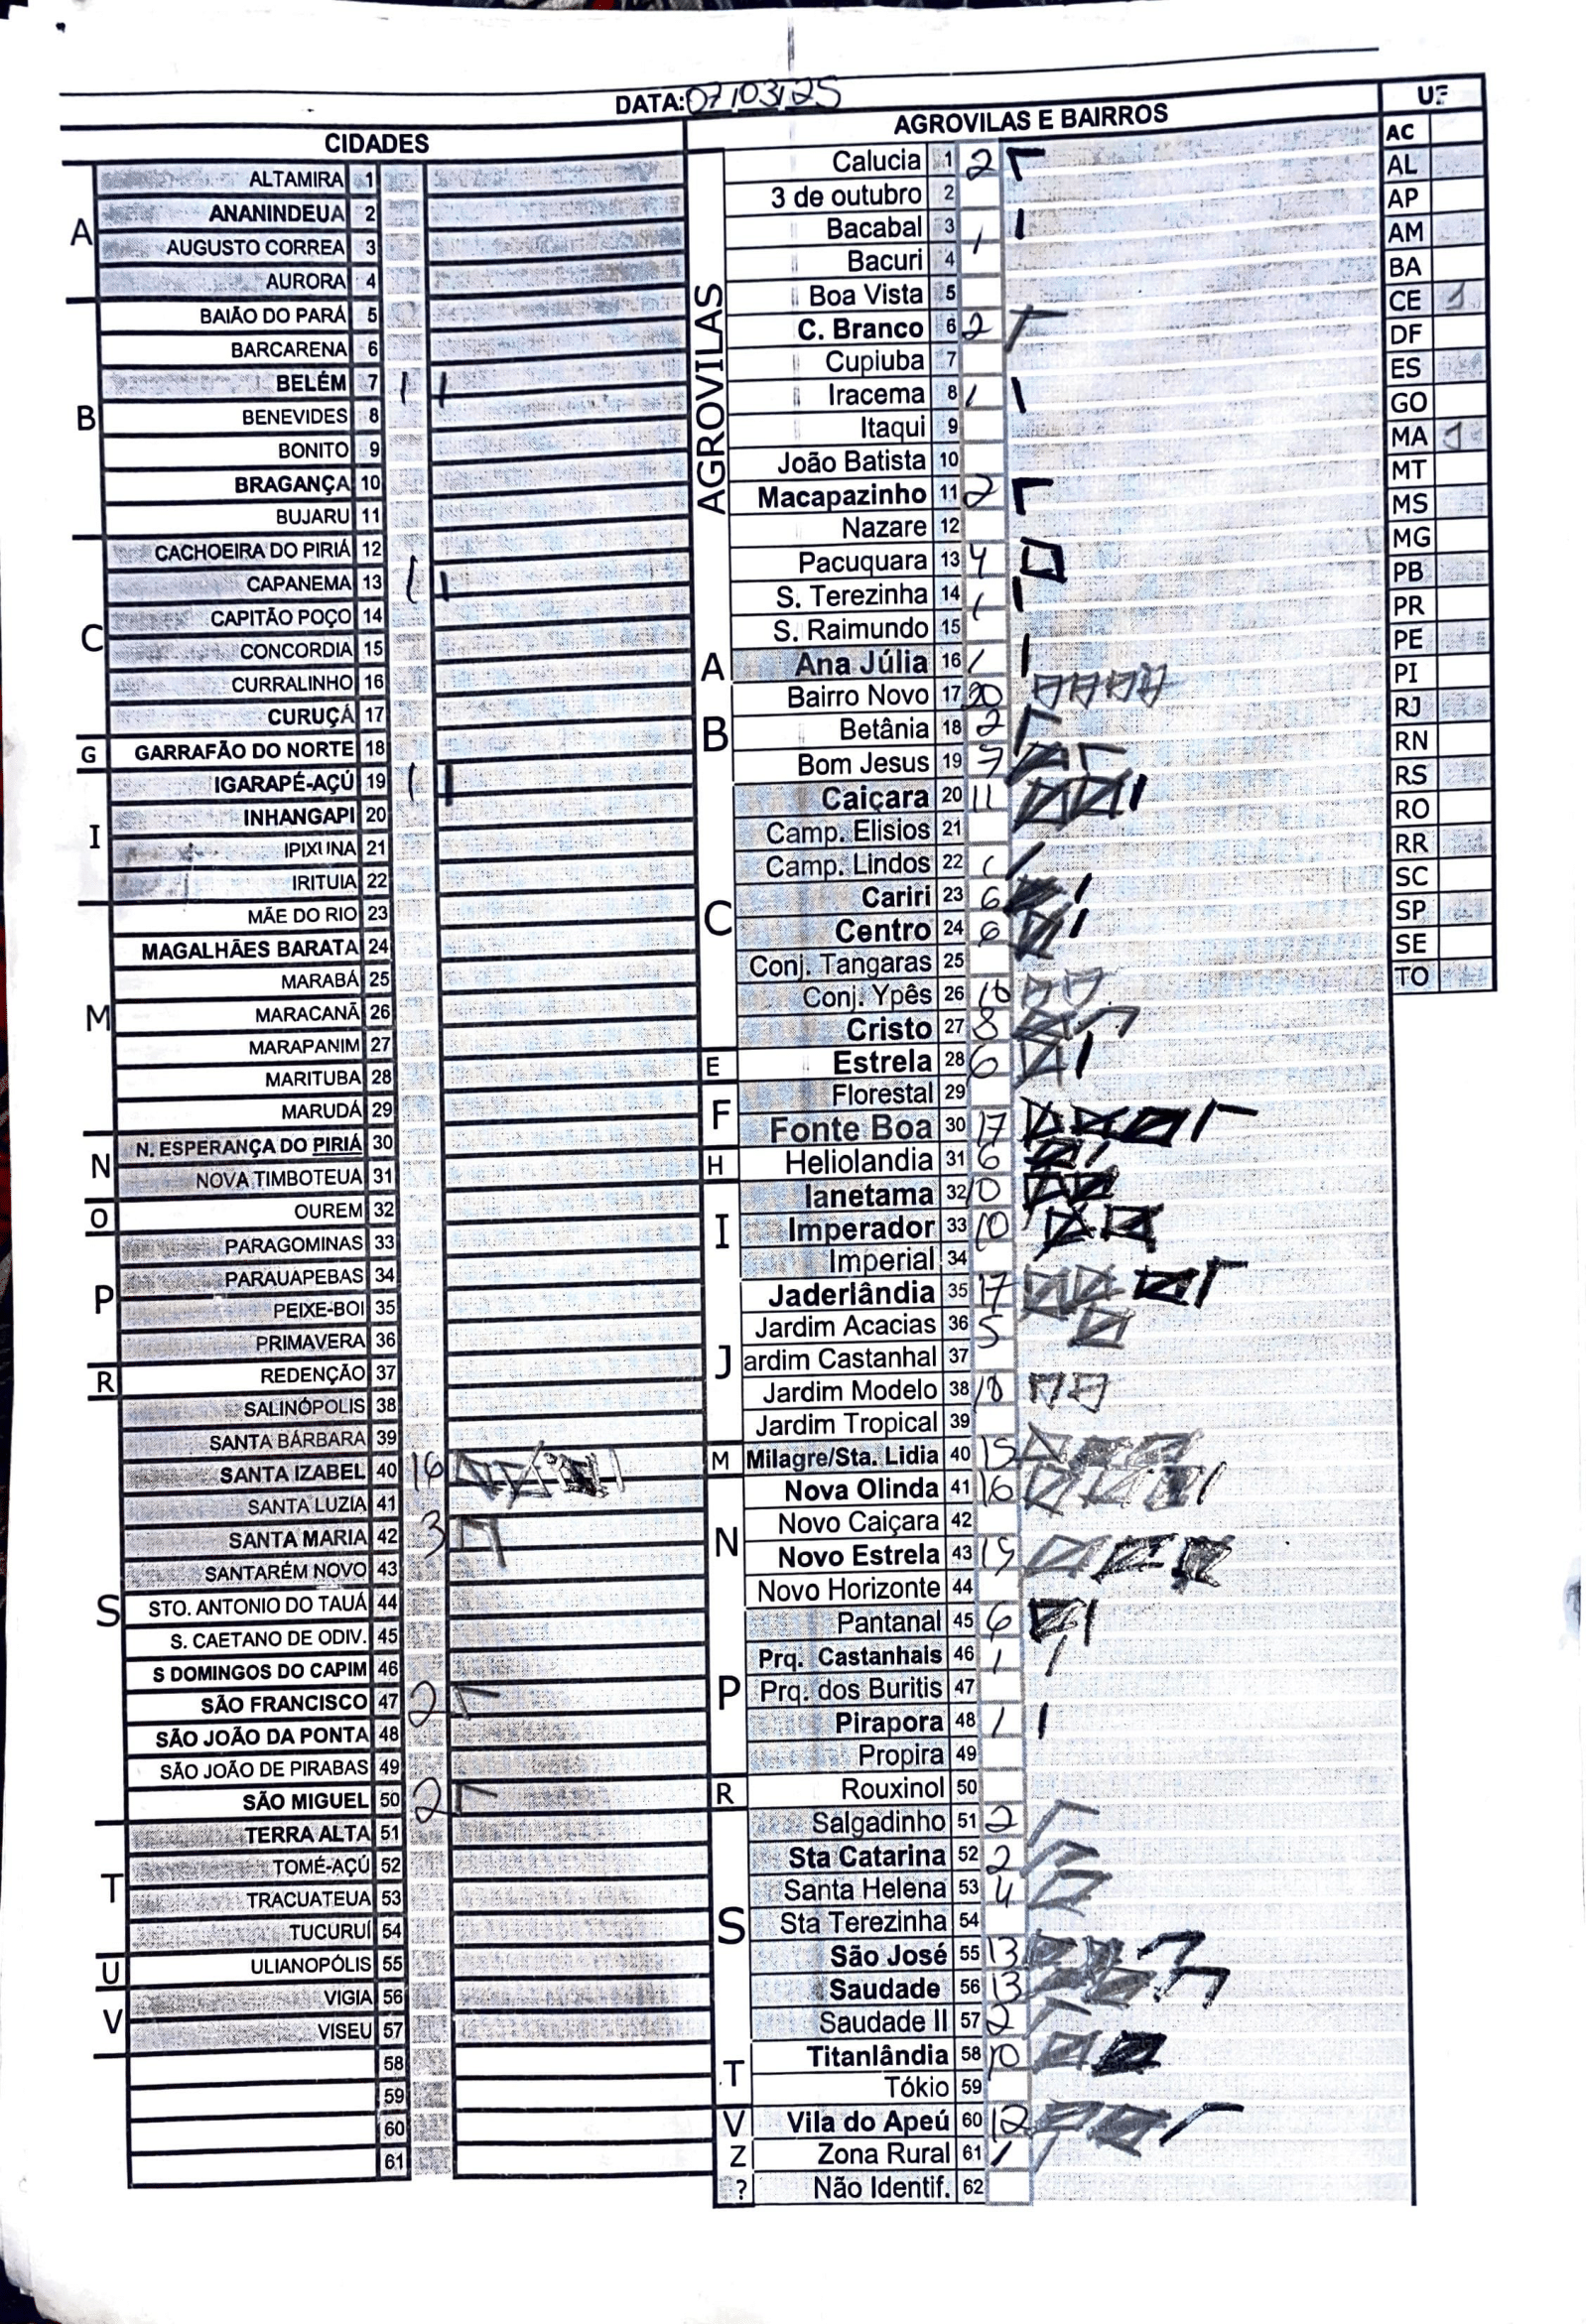 DATA: 07/03/25
CIDADES
A
ALTAMIRA 1
ANANINDEUA 2
AUGUSTO CORREA 3
AURORA 4
B
BAIÃO DO PARÁ 5
BARCARENA 6
BELÉM 7 1
BENEVIDES 8
BONITO 9
BRAGANÇA 10
BUJARU 11
C
CACHOEIRA DO PIRIÁ 12
CAPANEMA 13 1
CAPITÃO POÇO 14
CONCORDIA 15
CURRALINHO 16
CURUÇÁ 17
G
GARRAFÃO DO NORTE 18
I
IGARAPÉ-AÇÚ 19 1
INHANGAPI 20
IPIXUNA 21
IRITUIA 22
M
MÃE DO RIO 23
MAGALHÃES BARATA 24
MARABÁ 25
MARACANÃ 26
MARAPANIM 27
MARITUBA 28
MARUDÁ 29
N
N. ESPERANÇA DO PIRIÁ 30
NOVA TIMBOTEUA 31
O
OUREM 32
P
PARAGOMINAS 33
PARAUAPEBAS 34
PEIXE-BOI 35
PRIMAVERA 36
R
REDENÇÃO 37
S
SALINÓPOLIS 38
SANTA BÁRBARA 39
SANTA IZABEL 40 16
SANTA LUZIA 41
SANTA MARIA 42 3
SANTARÉM NOVO 43
STO. ANTONIO DO TAUÁ 44
S. CAETANO DE ODIV. 45
S DOMINGOS DO CAPIM 46
SÃO FRANCISCO 47 2
SÃO JOÃO DA PONTA 48
SÃO JOÃO DE PIRABAS 49
SÃO MIGUEL 50 2
T
TERRA ALTA 51
TOMÉ-AÇÚ 52
TRACUATEUA 53
TUCURUÍ 54
U
ULIANOPÓLIS 55
V
VIGIA 56
VISEU 57
58
59
60
61
AGROVILAS E BAIRROS
AGROVILAS
Calucia 1 2
3 de outubro 2
Bacabal 3 1
Bacuri 4
Boa Vista 5
C. Branco 6 2
Cupiuba 7
Iracema 8 1
Itaqui 9
João Batista 10
Macapazinho 11 2
Nazare 12
Pacuquara 13 4
S. Terezinha 14 1
S. Raimundo 15
A
Ana Júlia 16 1
B
Bairro Novo 17 20
Betânia 18 2
Bom Jesus 19 7
C
Caiçara 20 11
Camp. Elisios 21
Camp. Lindos 22 1
Cariri 23 6
Centro 24 6
Conj. Tangaras 25
Conj. Ypês 26 10
Cristo 27 8
E
Estrela 28 6
F
Florestal 29
Fonte Boa 30 17
H
Heliolandia 31 6
I
Ianetama 32 10
Imperador 33 10
Imperial 34
J
Jaderlândia 35 17
Jardim Acacias 36 5
ardim Castanhal 37
Jardim Modelo 38 10
Jardim Tropical 39
M
Milagre/Sta. Lidia 40 15
N
Nova Olinda 41 16
Novo Caiçara 42
Novo Estrela 43 15
Novo Horizonte 44
P
Pantanal 45 6
Prq. Castanhais 46 1
Prq. dos Buritis 47
Pirapora 48 1
Propira 49
R
Rouxinol 50
S
Salgadinho 51 2
Sta Catarina 52 2
Santa Helena 53 4
Sta Terezinha 54
São José 55 13
Saudade 56 13
Saudade II 57 2
T
Titanlândia 58 10
Tókio 59
V
Vila do Apeú 60 12
Z
Zona Rural 61 1
?
Não Identif. 62
UF
AC
AL
AP
AM
BA
CE 1
DF
ES
GO
MA 1
MT
MS
MG
PB
PR
PE
PI
RJ
RN
RS
RO
RR
SC
SP
SE
TO